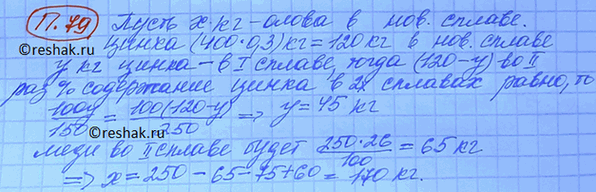 П. 79 Пусть x кг - олова в нов. сплаве.
© reshak.ru
цинка (400·0,3) кг = 120 кг в нов. сплаве
y кг цинка - в I сплаве, тогда (120-y) во II
раз % содержание цинка в 2х сплавах равно, то
100y/150 = 100(120-y)/250 => y = 45 кг
© reshak.ru
меди во II сплаве будет 250·26/100 = 65 кг
=> x = 250 - 65 - 75 + 60 = 170 кг.